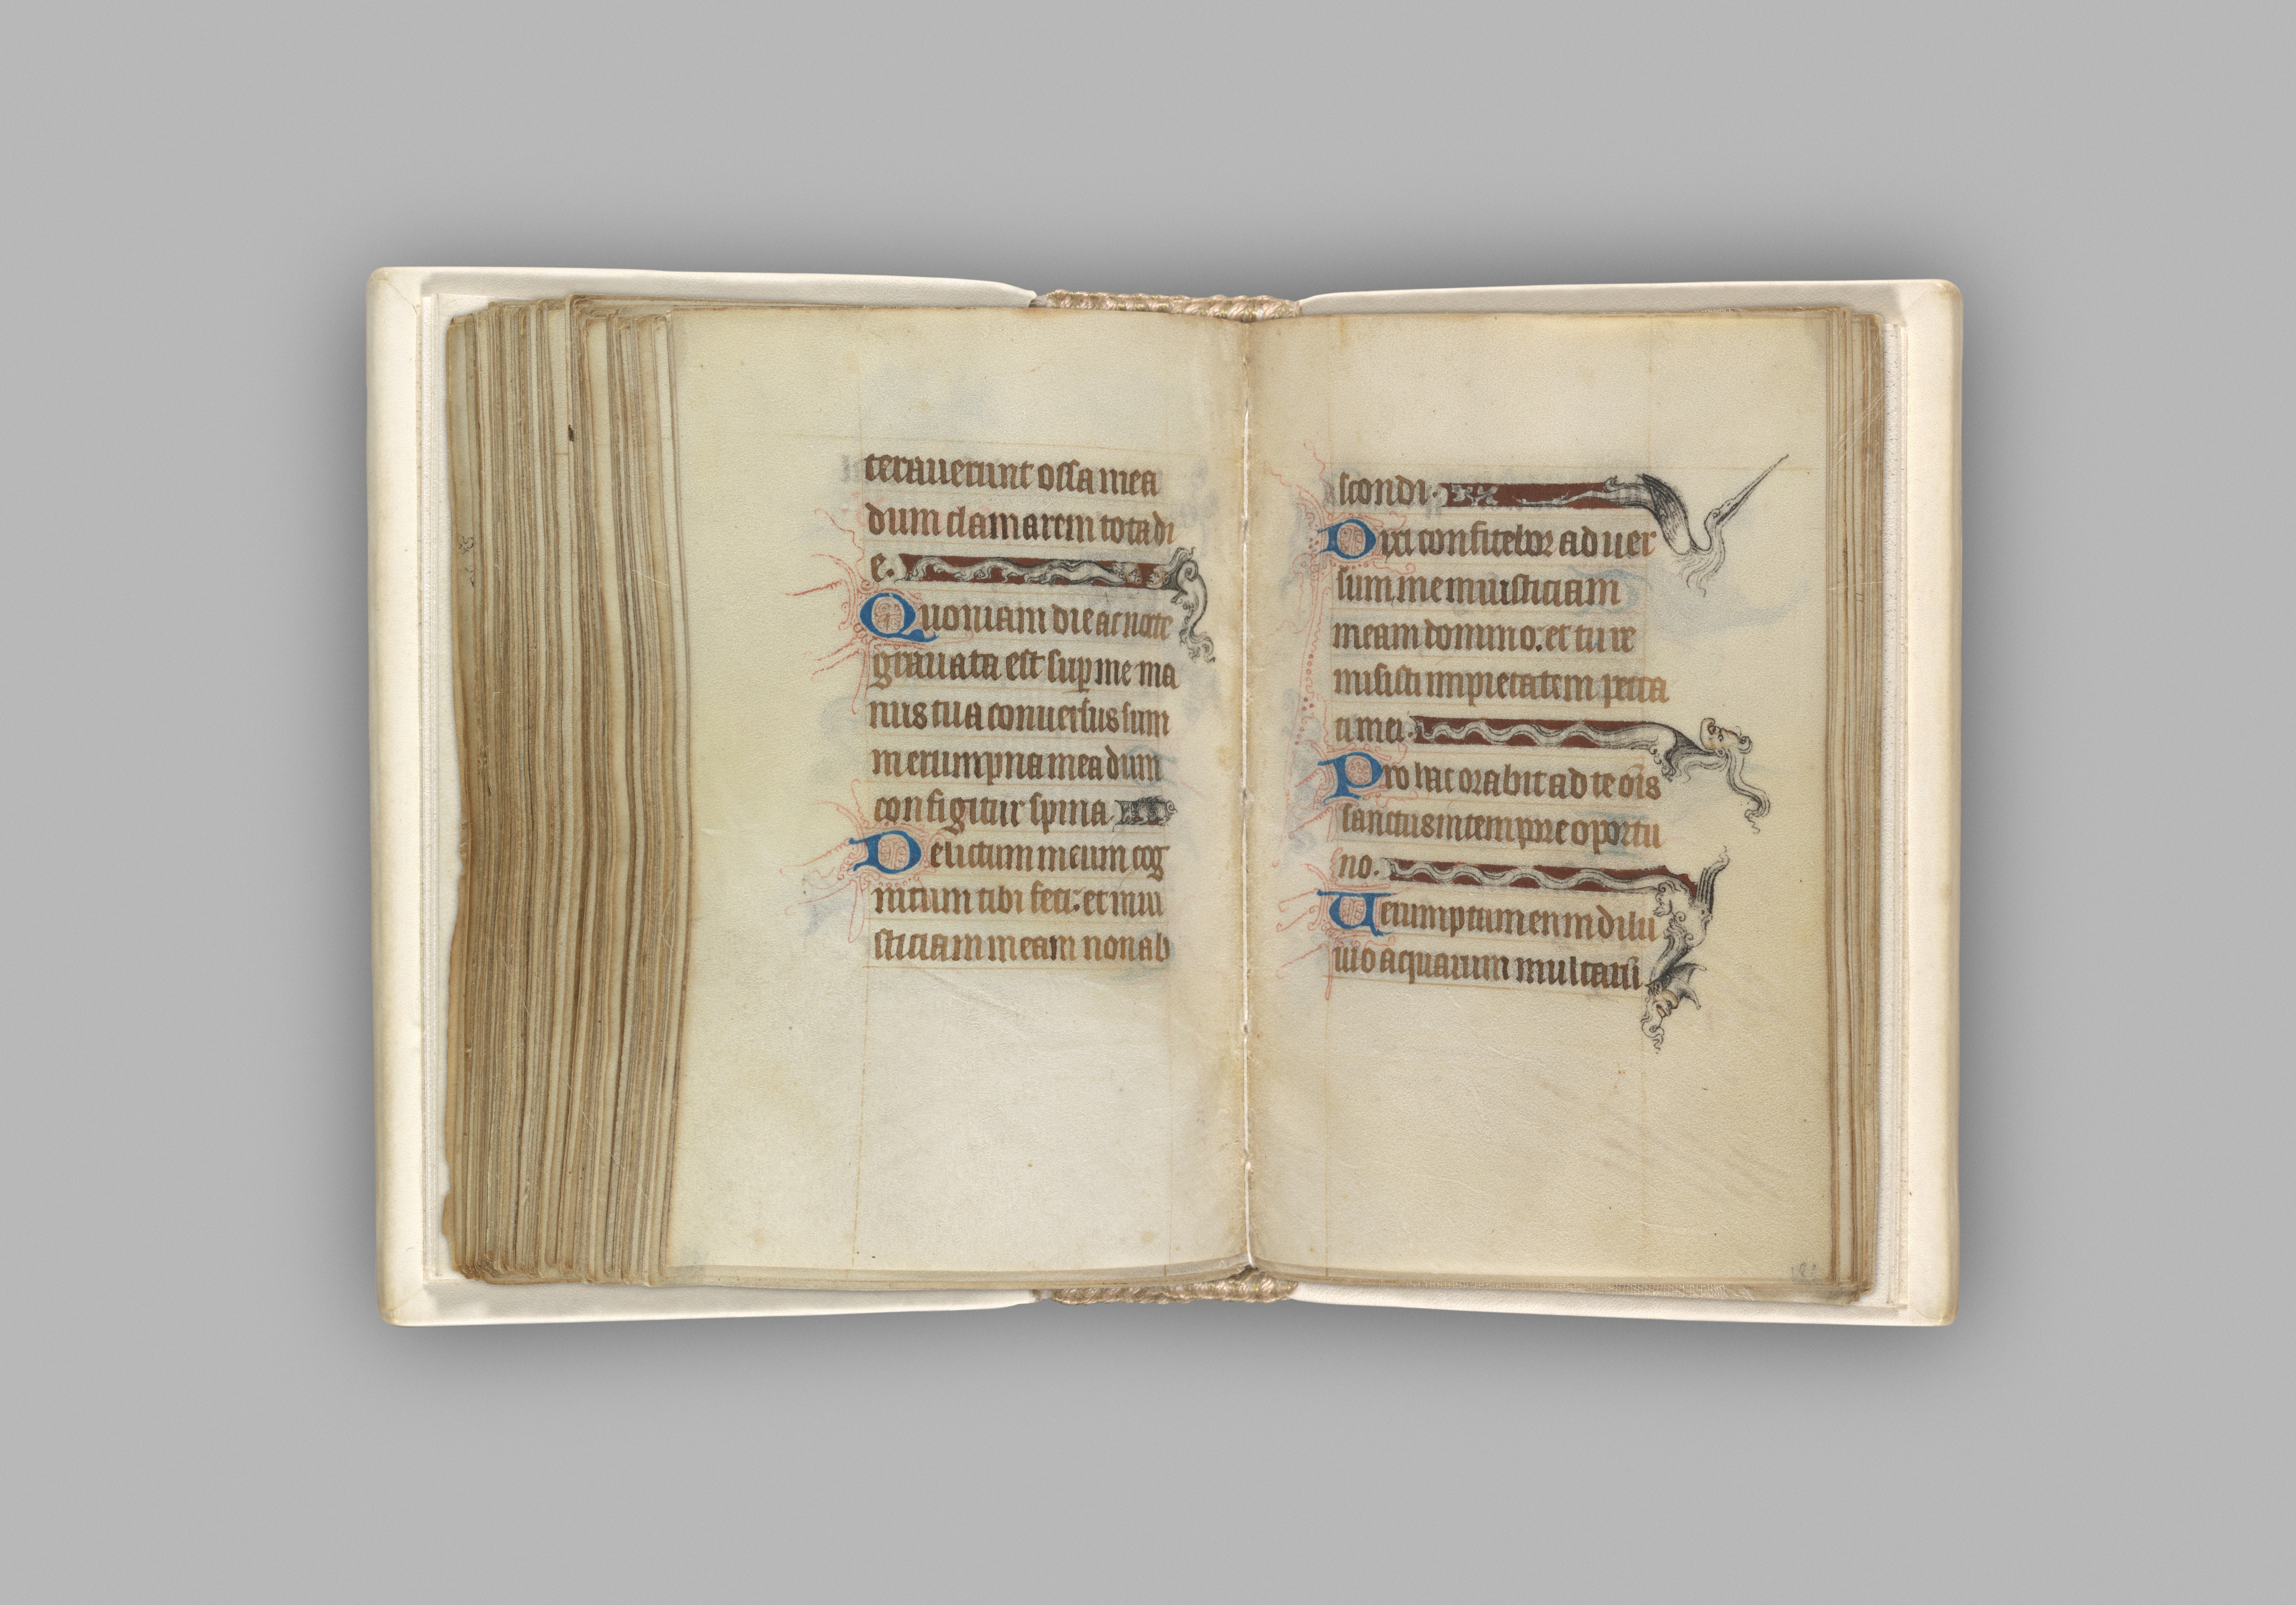 terauerunt ossa mea
dum clamarem tota di
e.
Quoniam die ac nocte
grauata est sup me ma
nus tua conuersus sum
in erumpna mea dum
configitur spina
Delictum meum cog
nitum tibi feci: et iniu
sticiam meam non ab
scondi.
Dixi confitebor aduer
sum me iniusticiam
meam domino: et tu re
misisti impietatem pecca
ti mei.
Pro hac orabit ad te ois
sanctus in tempore oportu
no.
Uerumptamen in dilu
uio aquarum multarū